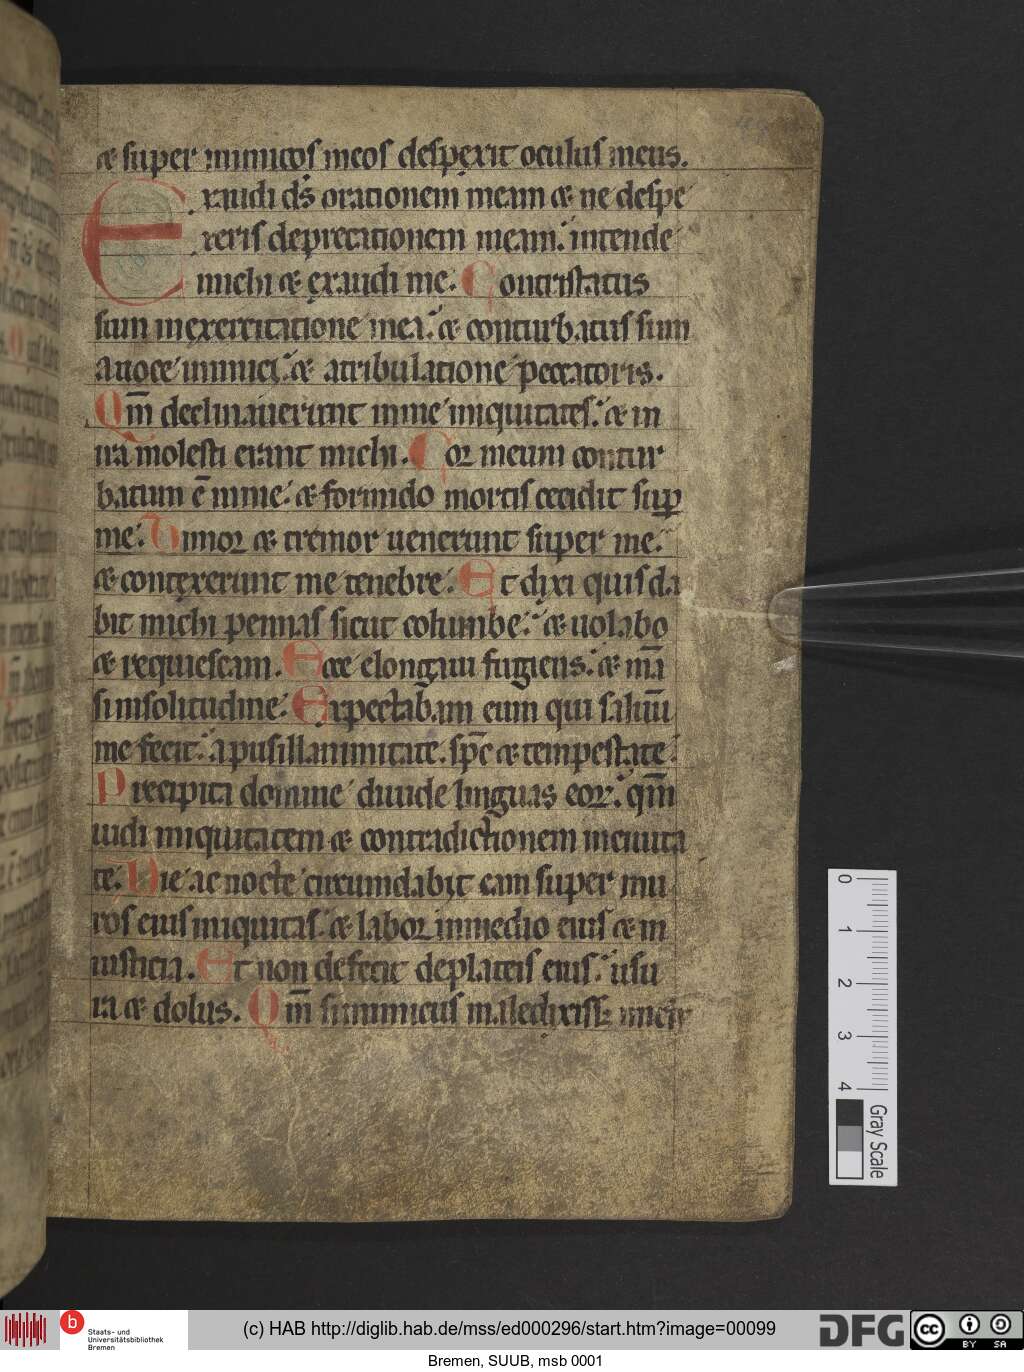 & super inimicos meos despęxit oculus meus.
Exaudi ds̄ orationem meam & ne despe
xeris deprecationem meam. intende
michi & ęxaudi me. Contristatus
sum inęxercitatione mea. & conturbatus sum
auoce inimici. & atribulatione peccatoris.
Qm̄ declinauerunt inme iniquitates. & in
ira molesti erant michi. Cor meum contur
batum ē inme. & formido mortis cecidit sup̱
me. Timor & tremor uenerunt super me.
& contęxerunt me tenebre. Et dixi quis da
bit michi pennas sicut columbe. & uolabo
& requiescam. Ecce elongaui fugiens. & mā
si insolitudine. Expectabam eum qui saluū
me fecit. apusillanimitate. spc̄ & tempestate.
Precipita domine diuide linguas eoꝝ. qm̄
uidi iniquitatem & contradictionem inciuita
te. Die ac nocte circumdabit eam super mu
ros eius iniquitas. & labor inmedio eius & in
iusticia. Et non defecit deplateis eius. usu
ra & dolus. Qm̄ siinimicus maledixiss& michi
0
1
2
3
4
Gray Scale
b
Staats- und
Universitätsbibliothek
Bremen
(c) HAB http://diglib.hab.de/mss/ed000296/start.htm?image=00099
DFG
cc
BY SA
Bremen, SUUB, msb 0001